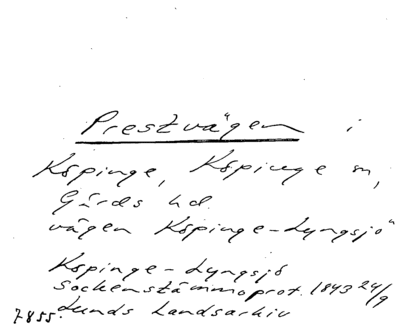 Prestvägen i
Köpinge, Köpinge sn,
Gärds hd.
vägen Köpinge-Lyngsjö"
Köpinge-Lyngsjö
sockenstämmoprot. 1843 24/9
7855. Lunds Landsarkiv